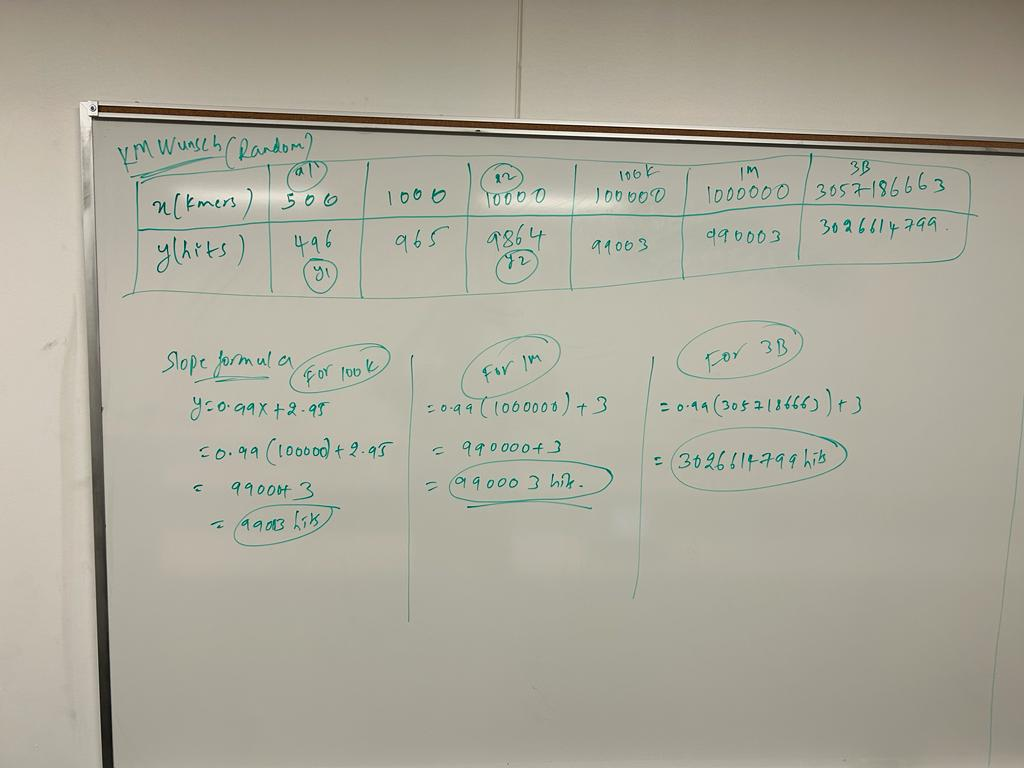 KMWunsch (Random)
x1 x2 100K 1M 3B
x(kmers) 500 1000 10000 100000 1000000 3057186663
y(hits) 496 965 9864 99003 990003 3026614799.
y1 y2
Slope formula For 100K
y=0.99x+2.95
=0.99(100000)+2.95
= 99000+3
= 99003 hits
For 1M
=0.99(1000000)+3
= 990000+3
= 990003 hits.
For 3B
=0.99(3057186663)+3
= 3026614799 hits